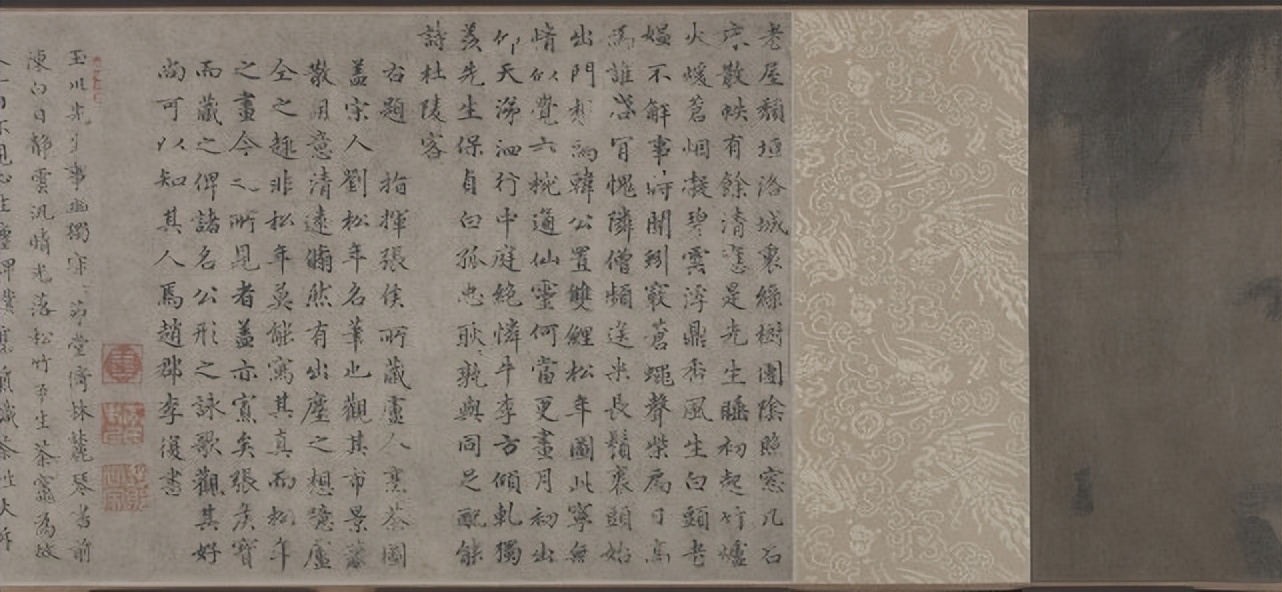 老屋頹垣洛城裏綠樹團陰照窓几石
床散帙有餘清應是先生睡初起竹爐
火煖蒼烟凝碧雲浮鼎香風生白頭老
媼不解事時聞蚓竅蒼蠅聲柴扃日高
為誰啓肎愧隣僧頻送米長鬚裹頭始
出門想為韓公置雙鯉松年圖此寧無
情似覺六椀通仙靈何當更畫月初出
仰天涕泗行中庭絶憐牛李方傾軋獨
羨先生保貞白孤忠耿〻孰與同足配能
詩杜陵客
右題 指揮張侯所藏盧仝烹茶圖
蓋宋人劉松年名筆也觀其布景蕭
散用意清遠翛然有出塵之想憶盧
仝之趣非松年莫能寫其真而松年
之畫今之所見者蓋亦寡矣張侯寶
而藏之俾諸名公形之詠歌觀其好
尚可以知其人焉趙郡李復書
玉川先生事幽獨琴書前
陳白日靜雲汎晴光落松竹平生茶竈為故